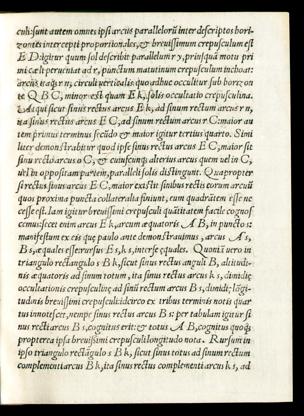 culi: sunt autem omnes ipsi arcus parallelorũ inter descriptos hori-
zontes intercepti proportionales, & breuissimum crepusculum est
E D: igitur quum sol describit parallelum r y, priusquā motu pri
mi cæli perueniat ad r, punctum matutinum crepusculum inchoat:
arcus itaque r n, circuli verticalis quo adhuc occultatur sub horizon
te Q B C, minor est quam E k, solis occultatio crepusculina.
At qui sicut sinus rectus arcus E k, ad sinum rectum arcus r n,
ita sinus rectus arcus E C, ad sinum rectum arcus r C: maior au
tem primus terminus secũdo & maior igitur tertius quarto. Simi
liter demonstrabitur quod ipse sinus rectus arcus E C, maior sit
sinu recto arcus o C, & cuiuscunque alterius arcus quem vel in C,
vel in oppositam partem, paralleli solis distingunt. Quapropter
si rectus sinus arcus E C, maior existit sinibus rectis eorum arcuũ
quos proxima puncta collateralia finiunt, eum quadrātem esse ne
cesse est. Iam igitur breuissimi crepusculi quātitatem facile cognos
cemus: secet enim arcus E k, arcum æquatoris A B, in puncto s:
manifestum ex eis quæ paulo ante demonstrauimus, arcus A s,
B s, æquales esse: rursus E s, k s, inter se æquales. Quoniā vero in
triangulo rectangulo s B k, sicut sinus rectus anguli B, altitudi-
nis æquatoris ad sinum totum, ita sinus rectus arcus k s, dimidiæ
occultationis crepusculinæ ad sinũ rectum arcus B s, dimidiæ lōgi-
tudinis breuissimi crepusculi: idcirco ex tribus terminis notis quar
tus innotescet, nempe sinus rectus arcus B s: per tabulam igitur si
nus recti arcus B s, cognitus erit: & totus A B, cognitus quoque
propterea ipsa breuissimi crepusculi longitudo nota. Rursum in
ipso triangulo rectāgulo s B k, sicut sinus totus ad sinum rectum
complementi arcus B k, ita sinus rectus complementi arcus k s, ad